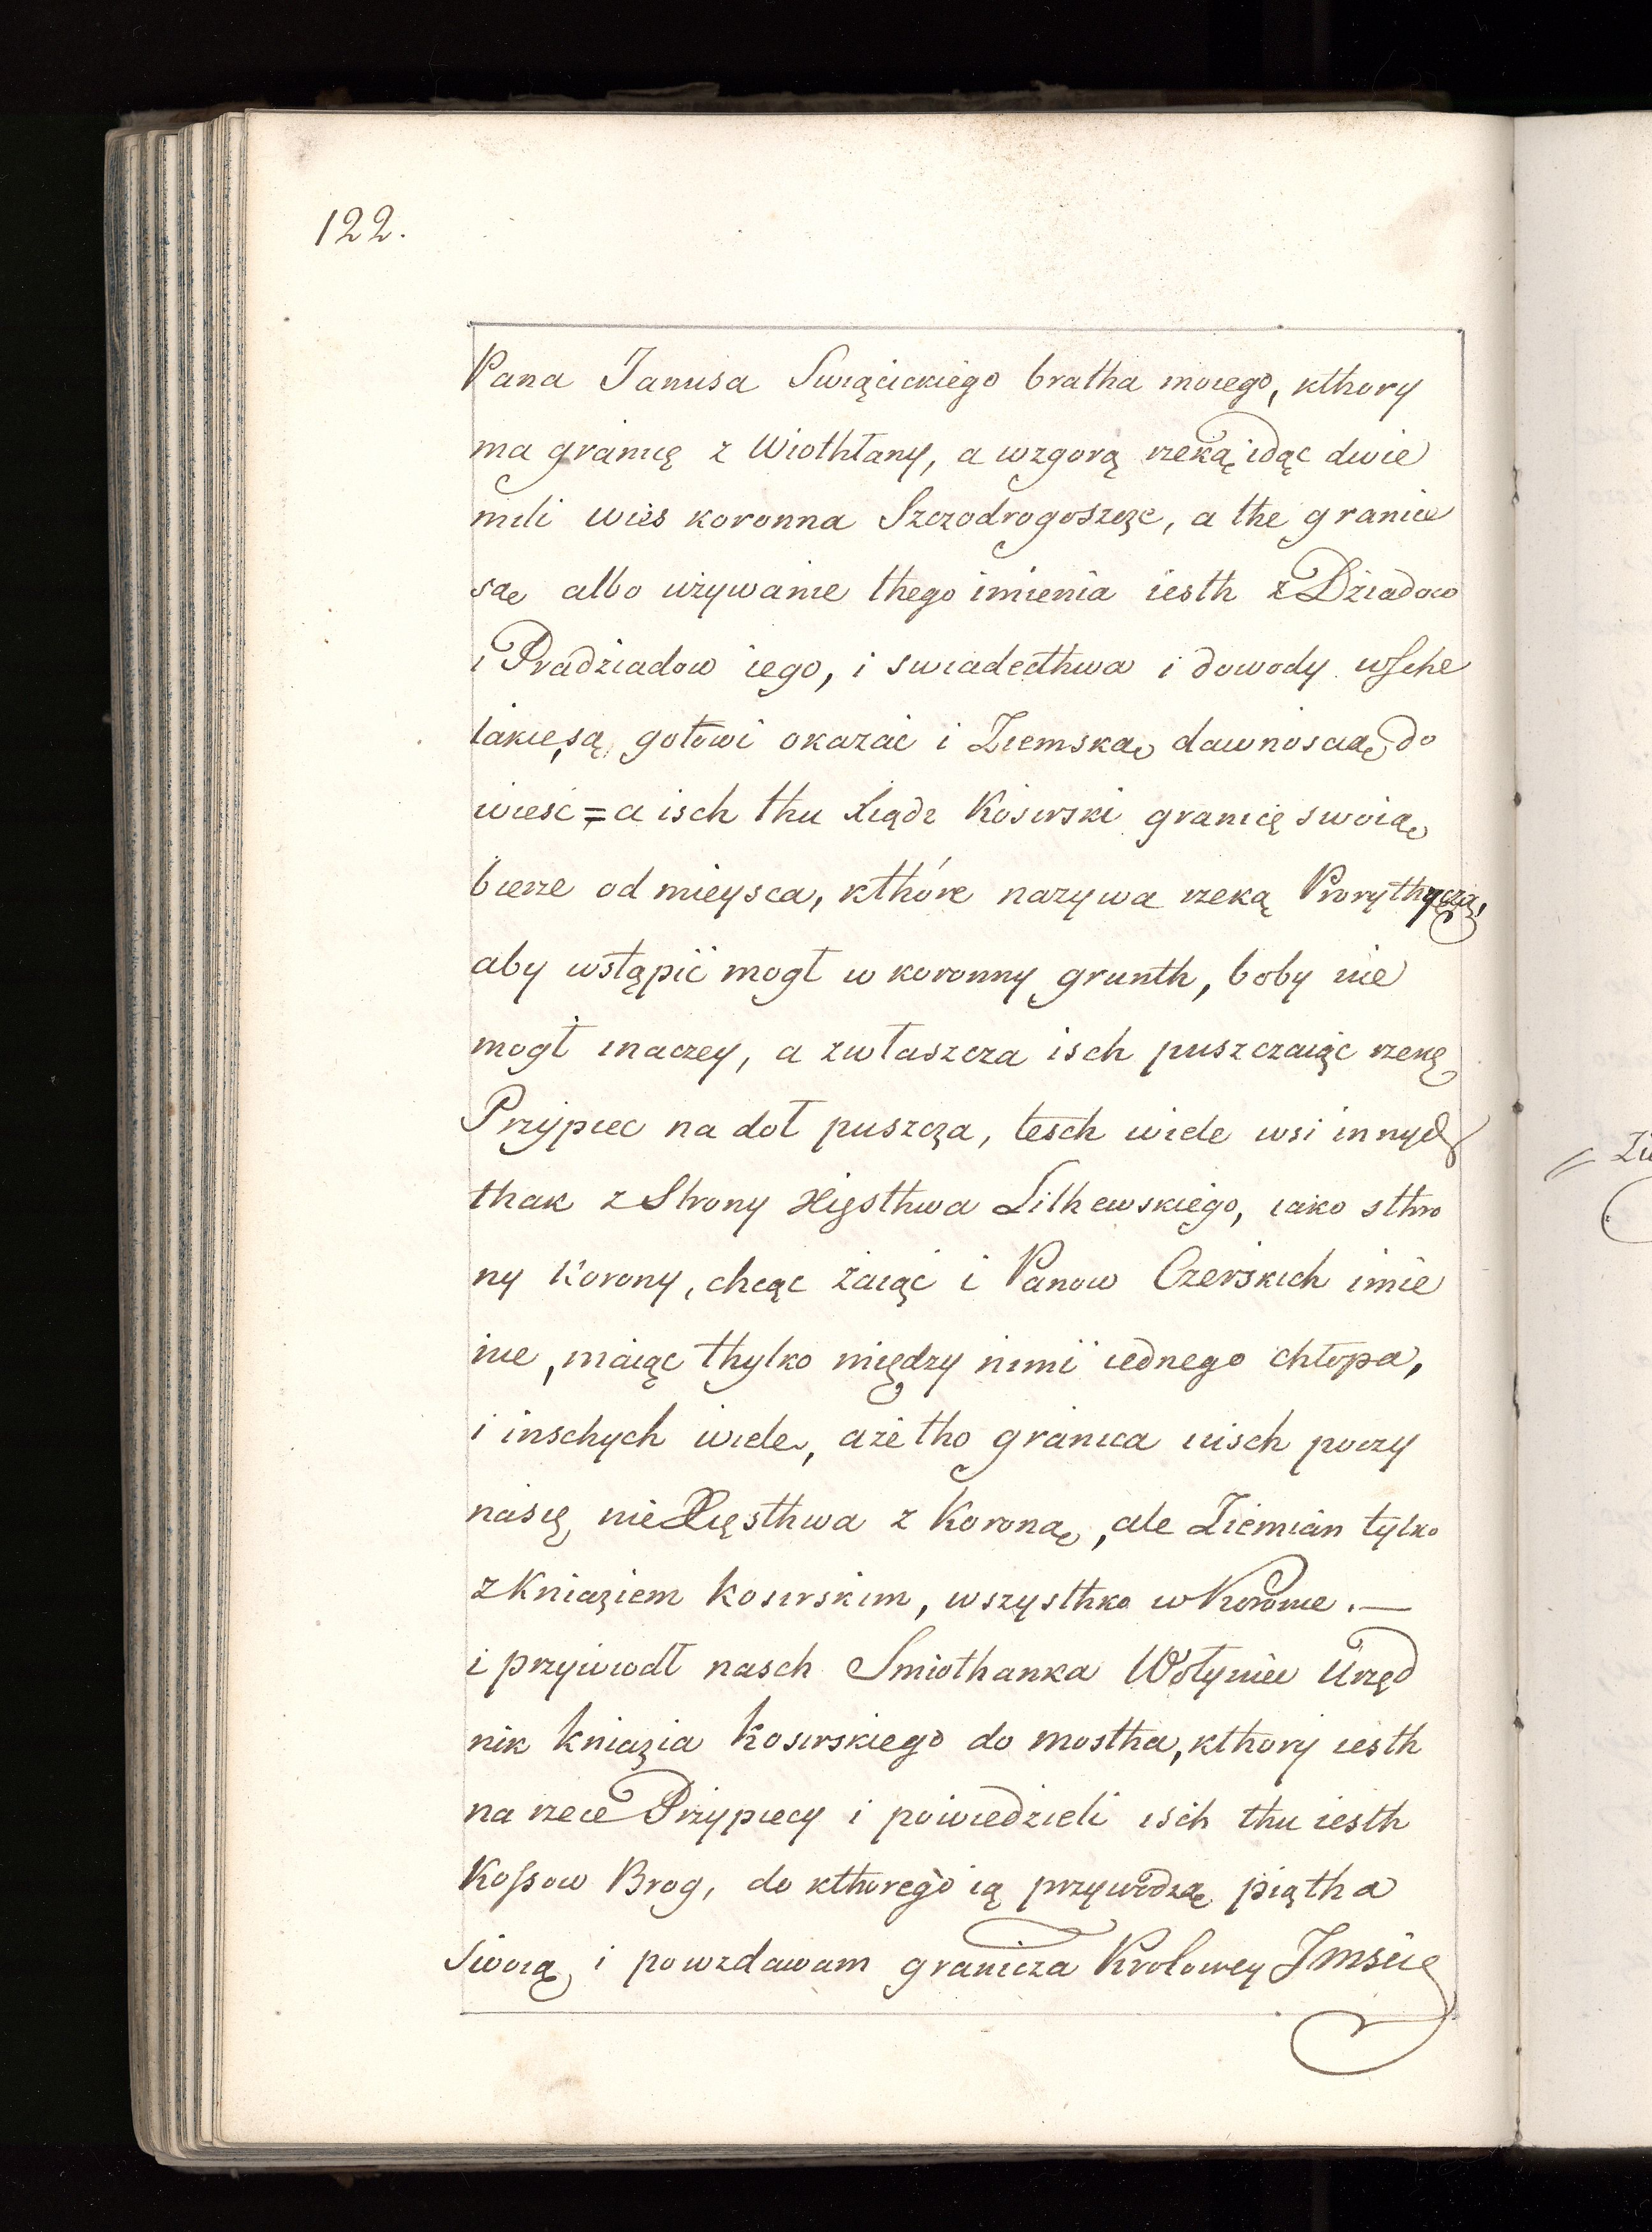 122.
Pana Janusa Swiącickiego bratha moiego, kthory
ma granicę z Wiothłany, a wzgorą rzeką idąc dwie
mili wies koronna Szczodrogoszcze, a the granice
są albo używanie thego imienia iesth z Dziadow
i Pradziadow iego, i swiadecthwa i dowody wsche
lakie są gotowi okazać i Ziemską dawnoscią do
wieść = a isch thu Xiądz Kosirski granicę swoią
bierze od mieysca, kthóre nazywa rzeką
aby wstąpić mogł w koronny grunth, boby nie
mogł inaczey, a zwłaszcza isch puszczaiąc rzekę
Przypiec na doł puszcza, tesch wiele wsi innych
thak z Strony Xięsthwa Lithewskiego, iako sthro
ny Korony, chcąc zaiąć i Panow Czerskich imie
nie, maiąc thylko między nimi iednego chłopa,
i inschych wiele, aże tho granica iusch poczy
na się nie Xięsthwa z Koroną, ale Ziemian tylko
z Kniaziem Kosirskim, wszysthko w Koronie. —
i przywiodł nasch Smiothanka Wołyniec Urzęd
nik Kniazia Kosirskiego do mostha, kthory iesth
na rzece Przypiecy i powiedzieli isch thu iesth
Kossow Brog, do kthorego ią przywodzą piątha
Swoią i powzdawam granicza Krolowey Jmsci